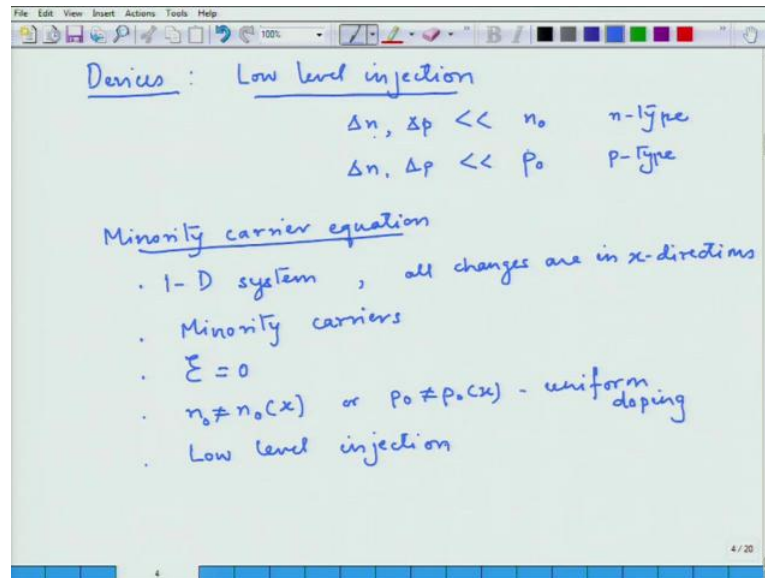 File Edit View Insert Actions Tools Help
100% B I
Devices : Low level injection
Δn, Δp << n₀ n-type
Δn, Δp << p₀ p-type
Minority carrier equation
. 1-D system , all changes are in x-directions
. Minority carriers
. ℰ = 0
. n₀ ≠ n₀(x) or p₀ ≠ p₀(x) - uniform
doping
. Low level injection
4/20
4